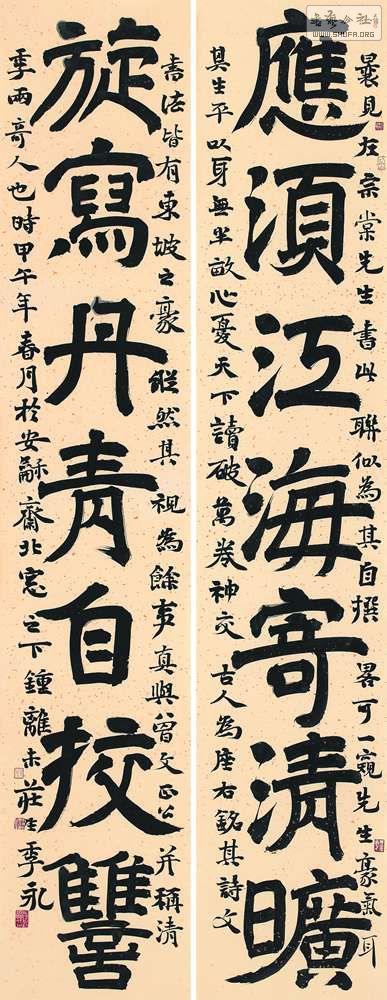 應須江海寄清曠
曩見左宗棠先生書此聯似為其自撰畧可一窺先生豪氣耳
其生平以身無半畝心憂天下讀破萬卷神交古人為座右銘其詩文
書法皆有東坡之豪縱然其視為餘事真與曾文正公并稱清
旋寫丹青自挍讐
季兩奇人也時甲午年春月於安龢齋北窓之下鍾離未莊生季永
SHUFA.ORG